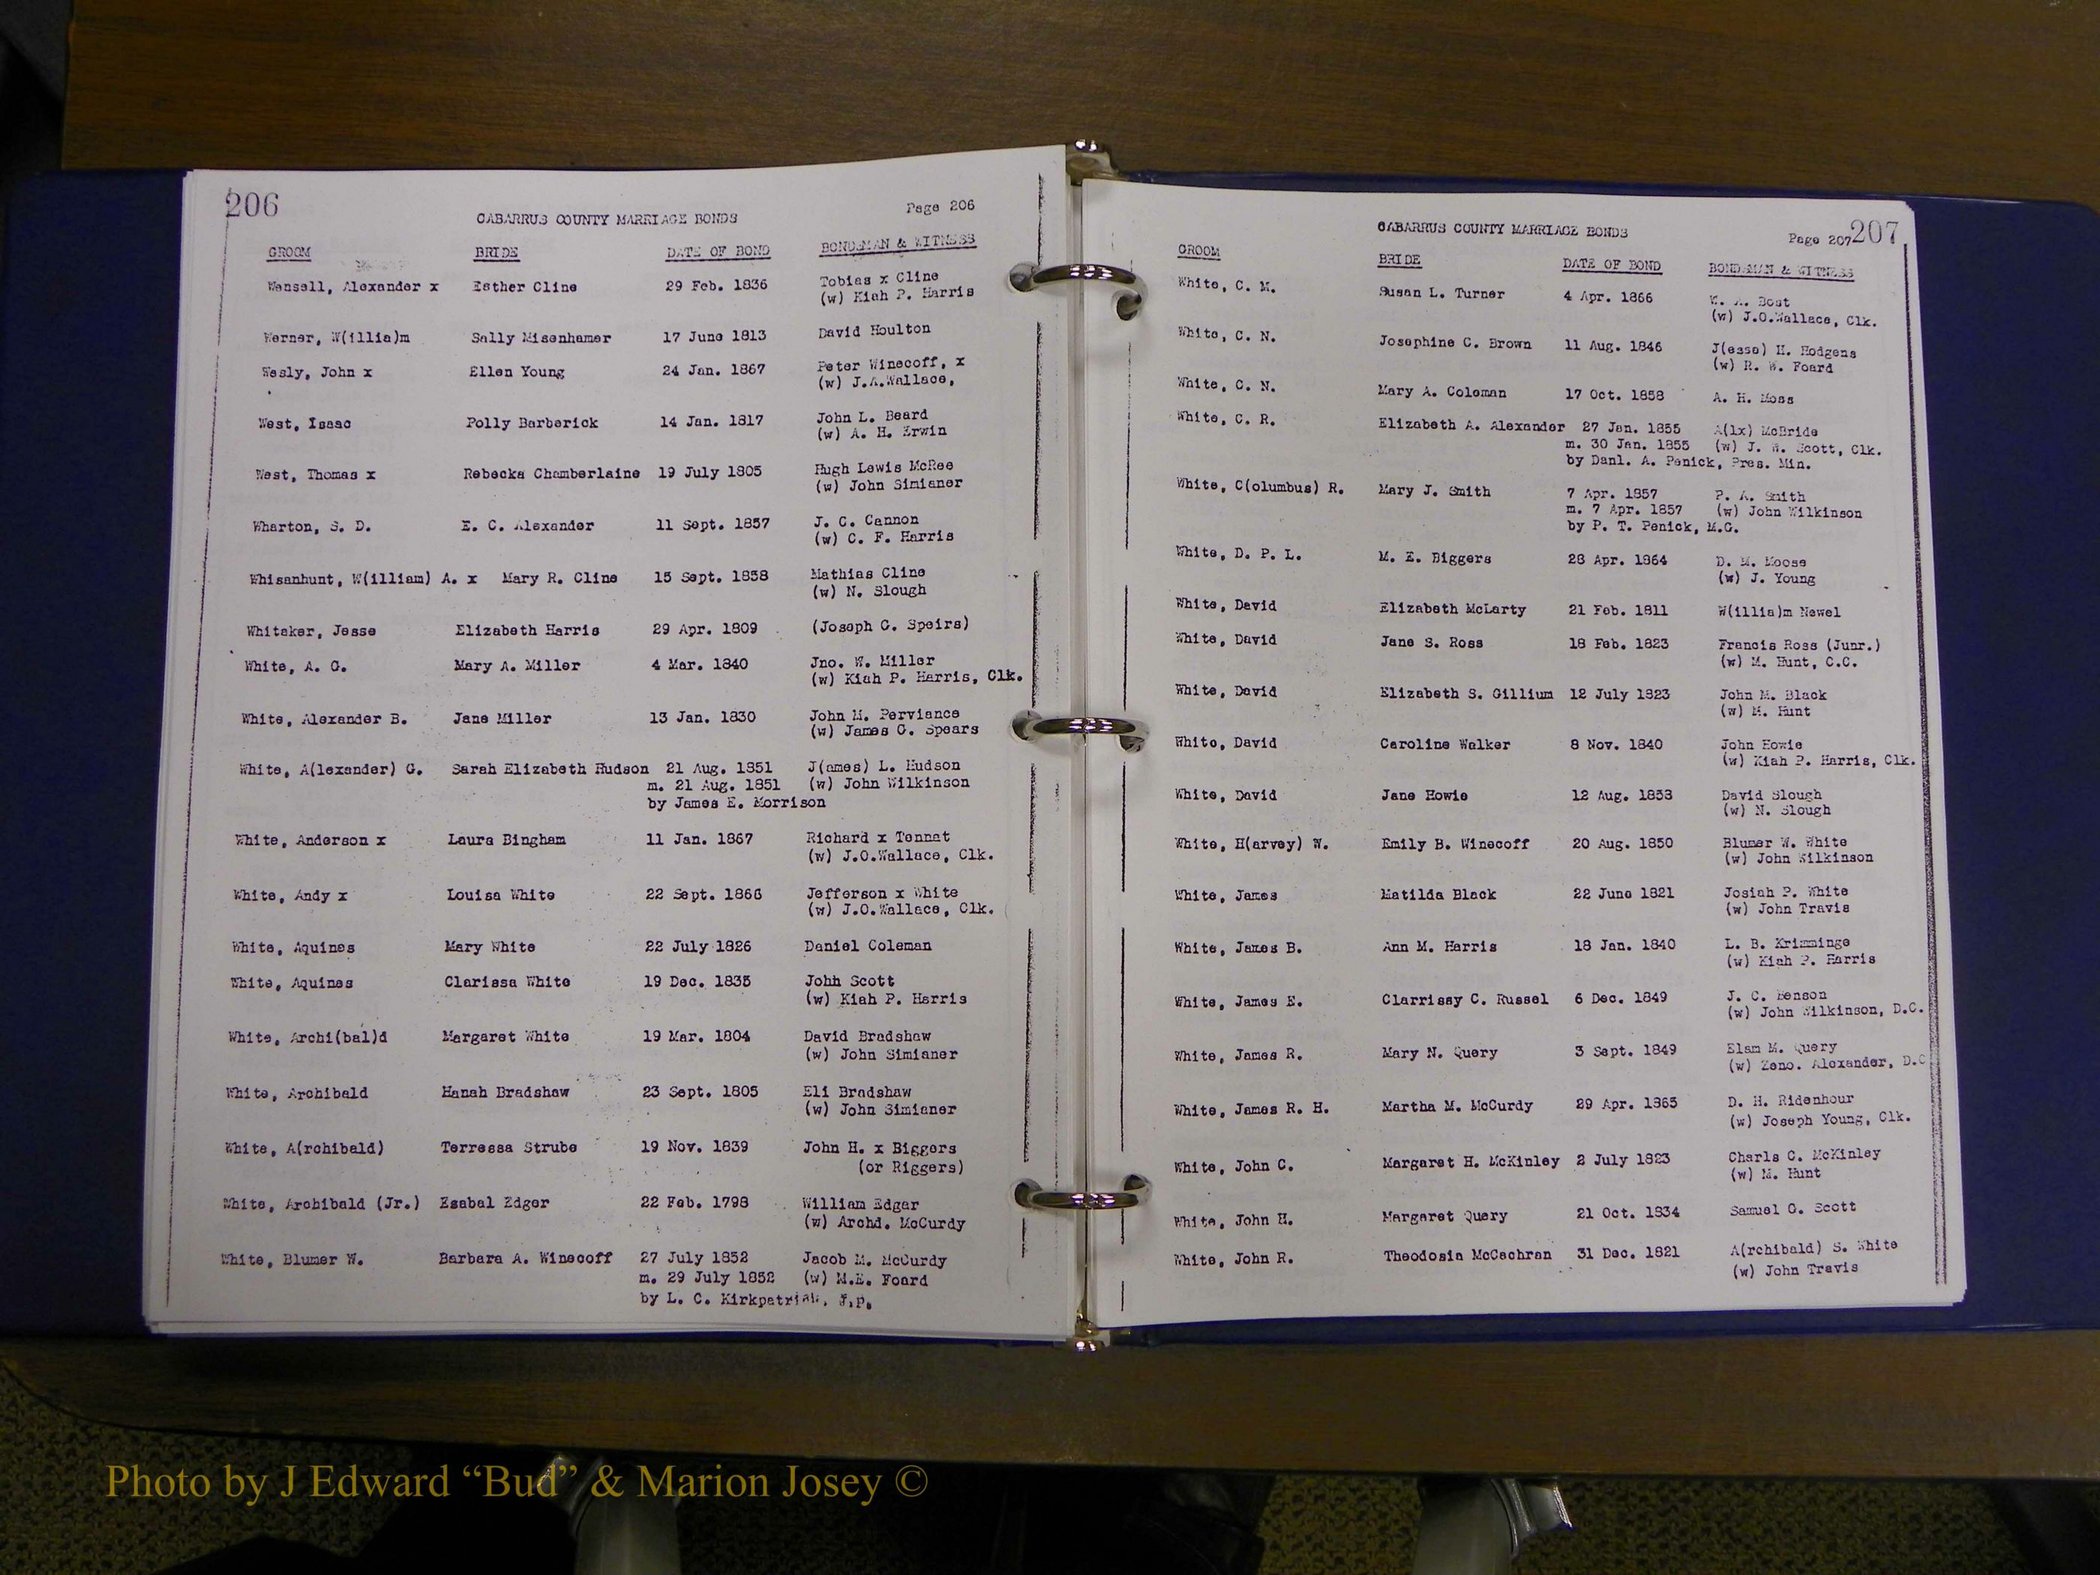 206
CABARRUS COUNTY MARRIAGE BONDS Page 206
GROOM BRIDE DATE OF BOND BONDSMAN & WITNESS
Wensell, Alexander x Esther Cline 29 Feb. 1836 Tobias x Cline
(w) Kiah P. Harris
Werner, W(illia)m Sally Misenhamer 17 June 1813 David Houlton
Wesly, John x Ellen Young 24 Jan. 1867 Peter Winecoff, x
(w) J.A.Wallace,
West, Isaac Polly Barberick 14 Jan. 1817 John L. Beard
(w) A. H. Erwin
West, Thomas x Rebecka Chamberlaine 19 July 1805 Hugh Lewis McRee
(w) John Simianer
Wharton, S. D. E. C. Alexander 11 Sept. 1857 J. C. Cannon
(w) C. F. Harris
Whisanhunt, W(illiam) A. x Mary R. Cline 15 Sept. 1858 Mathias Cline
(w) N. Slough
Whitaker, Jesse Elizabeth Harris 29 Apr. 1809 (Joseph G. Speirs)
White, A. G. Mary A. Miller 4 Mar. 1840 Jno. W. Miller
(w) Kiah P. Harris, Clk.
White, Alexander B. Jane Miller 13 Jan. 1830 John M. Perviance
(w) James G. Spears
White, A(lexander) G. Sarah Elizabeth Hudson 21 Aug. 1851 J(ames) L. Hudson
m. 21 Aug. 1851 (w) John Wilkinson
by James E. Morrison
White, Anderson x Laura Bingham 11 Jan. 1867 Richard x Tennat
(w) J.O.Wallace, Clk.
White, Andy x Louisa White 22 Sept. 1866 Jefferson x White
(w) J.O.Wallace, Clk.
White, Aquines Mary White 22 July 1826 Daniel Coleman
White, Aquines Clarissa White 19 Dec. 1835 John Scott
(w) Kiah P. Harris
White, Archi(bal)d Margaret White 19 Mar. 1804 David Bradshaw
(w) John Simianer
White, Archibald Hanah Bradshaw 23 Sept. 1805 Eli Bradshaw
(w) John Simianer
White, A(rchibald) Terressa Strube 19 Nov. 1839 John H. x Biggers
(or Riggers)
White, Archibald (Jr.) Esabal Edgar 22 Feb. 1798 William Edgar
(w) Archd. McCurdy
White, Blumer W. Barbara A. Winecoff 27 July 1852 Jacob M. McCurdy
m. 29 July 1852 (w) M.E. Foard
by L. C. Kirkpatrick, J.P.
CABARRUS COUNTY MARRIAGE BONDS Page 207 207
GROOM BRIDE DATE OF BOND BONDSMAN & WITNESS
White, C. M. Susan L. Turner 4 Apr. 1866 W. A. Bost
(w) J.O.Wallace, Clk.
White, C. N. Josephine C. Brown 11 Aug. 1846 J(esse) H. Hodgens
(w) R. W. Foard
White, C. N. Mary A. Coleman 17 Oct. 1858 A. H. Moss
White, C. R. Elizabeth A. Alexander 27 Jan. 1855 A(lx) McBride
m. 30 Jan. 1855 (w) J. W. Scott, Clk.
by Danl. A. Penick, Pres. Min.
White, C(olumbus) R. Mary J. Smith 7 Apr. 1857 P. A. Smith
m. 7 Apr. 1857 (w) John Wilkinson
by P. T. Penick, M.G.
White, D. P. L. M. E. Biggers 28 Apr. 1864 D. M. Moose
(w) J. Young
White, David Elizabeth McLarty 21 Feb. 1811 W(illia)m Newel
White, David Jane S. Ross 18 Feb. 1823 Francis Ross (Junr.)
(w) M. Hunt, C.C.
White, David Elizabeth S. Gillium 12 July 1823 John M. Black
(w) M. Hunt
White, David Caroline Walker 8 Nov. 1840 John Howie
(w) Kiah P. Harris, Clk.
White, David Jane Howie 12 Aug. 1858 David Slough
(w) N. Slough
White, H(arvey) W. Emily B. Winecoff 20 Aug. 1850 Blumer W. White
(w) John Wilkinson
White, James Matilda Black 22 June 1821 Josiah P. White
(w) John Travis
White, James B. Ann M. Harris 18 Jan. 1840 L. B. Krimminge
(w) Kiah P. Harris
White, James E. Clarrissy C. Russel 6 Dec. 1849 J. C. Benson
(w) John Wilkinson, D.C.
White, James R. Mary N. Query 3 Sept. 1849 Elam M. Query
(w) Zeno. Alexander, D.C
White, James R. H. Martha M. McCurdy 29 Apr. 1865 D. H. Ridenhour
(w) Joseph Young, Clk.
White, John C. Margaret H. McKinley 2 July 1823 Charls C. McKinley
(w) M. Hunt
White, John H. Margaret Query 21 Oct. 1834 Samuel O. Scott
White, John R. Theodosia McCachran 31 Dec. 1821 A(rchibald) S. White
(w) John Travis
Photo by J Edward “Bud” & Marion Josey ©